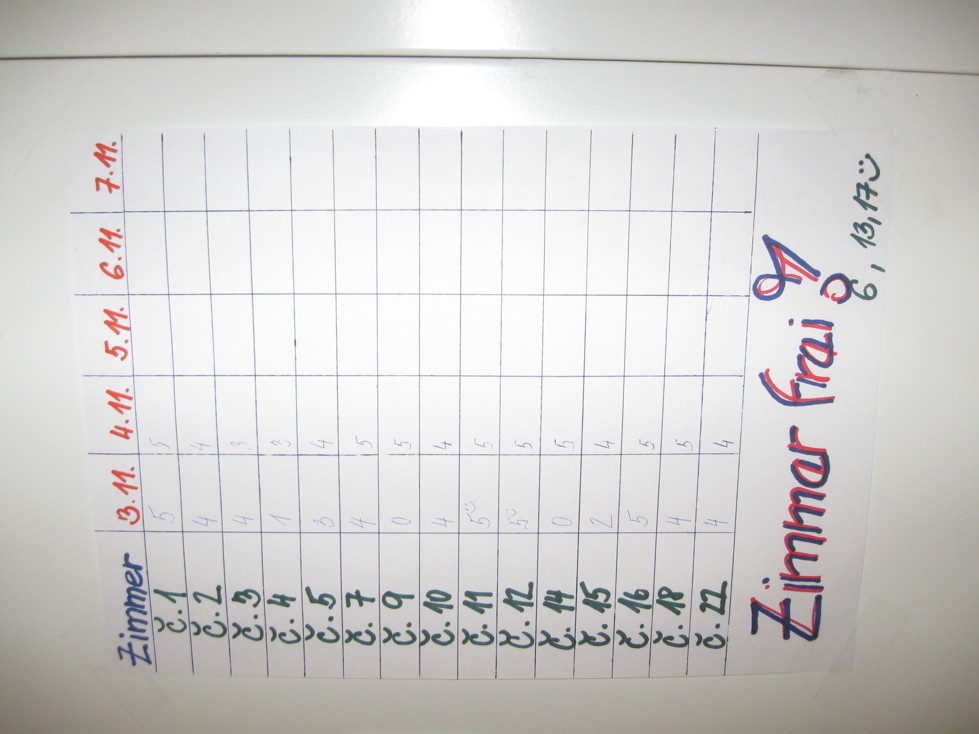 Zimmer 3.11. 4.11. 5.11. 6.11. 7.11.
č. 1 5 5
č. 2 4 4
č. 3 4 3
č. 4 1 3
č. 5 3 4
č. 7 4 5
č. 9 0 5
č. 10 4 4
č. 11 5 5
č. 12 5 5
č. 14 0 5
č. 15 2 4
č. 16 5 5
č. 18 4 5
č. 22 4 4
Zimmer frai
6, 13, 17